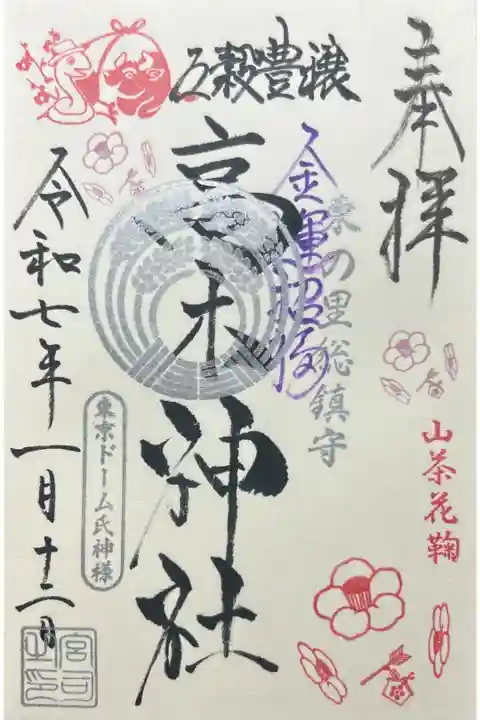 奉拝
山茶花鞠
五穀豊穣
の里総鎮守
金運
高木神社
令和七年一月十二日
東京ドーム氏神様
宮司之印